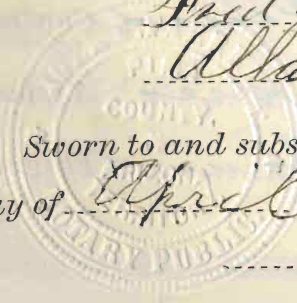 Fred
Alla
COUNTY,
Sworn to and subs
ay of April
NOTARY PUBLIC